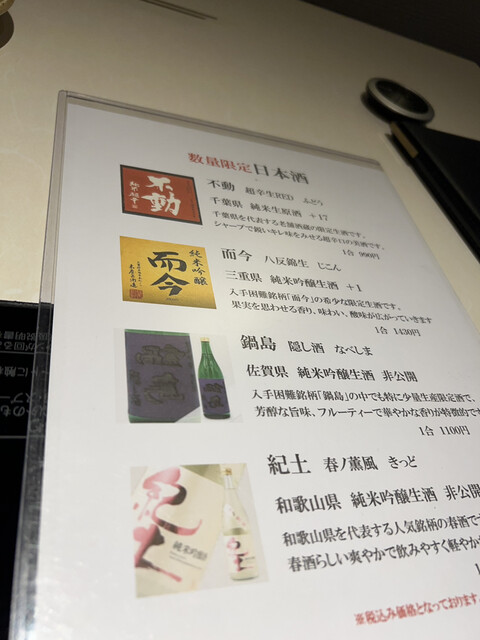 数量限定日本酒
不動
不動 超辛生RED ふどう
千葉県 純米生原酒 +17
千葉県を代表する老舗酒蔵の限定生酒です。
シャープで鋭いキレ味をみせる超辛口の美酒です。
1合 990円
純米吟醸
而今
而今 八反錦生 じこん
三重県 純米吟醸生酒 +1
入手困難銘柄「而今」の希少な限定生酒です。
果実を思わせる香り、味わい、酸味が広がっていきます
1合 1430円
鍋島 隠し酒 なべしま
佐賀県 純米吟醸生酒 非公開
入手困難銘柄「鍋島」の中でも特に少量生産限定酒で、
芳醇な旨味、フルーティーで華やかな香りが特徴的です
1合 1100円
紀土
純米吟醸酒
紀土 春ノ薫風 きっど
和歌山県 純米吟醸生酒 非公開
和歌山県を代表する人気銘柄の春酒です
春酒らしい爽やかで飲みやすく軽やか
※税込み価格となっております。